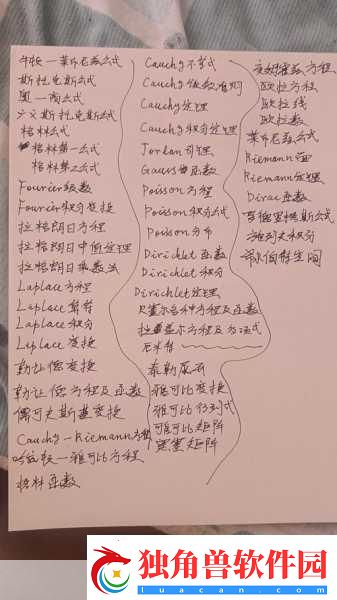 牛顿—莱布尼兹公式
斯托克斯公式
奥—高公式
广义斯托克斯公式
格林公式
格林第一公式
格林第二公式
Fourier级数
Fourier积分变换
拉格朗日方程
拉格朗日中值定理
拉格朗日乘数法
Laplace方程
Laplace算符
Laplace积分
Laplace变换
勒让德变换
勒让德方程及函数
Cauchy—Riemann方程
哈密顿—雅可比方程
格林函数
Cauchy不等式
Cauchy级数准则
Cauchy定理
Cauchy积分定理
Jordan引理
Gauss函数
Poisson方程
Poisson积分公式
Poisson分布
Dirichlet函数
Dirichlet积分
Dirichlet定理
贝塞尔各种方程及函数
厄米特
泰勒展示
雅可比变换
雅可比行列式
雅可比矩阵
黑塞矩阵
欧拉方程
欧拉线
欧拉数
莱布尼兹公式
Riemann面
Riemann定理
Dirac函数
希尔伯特空间
独角兽软件园
luacan.com